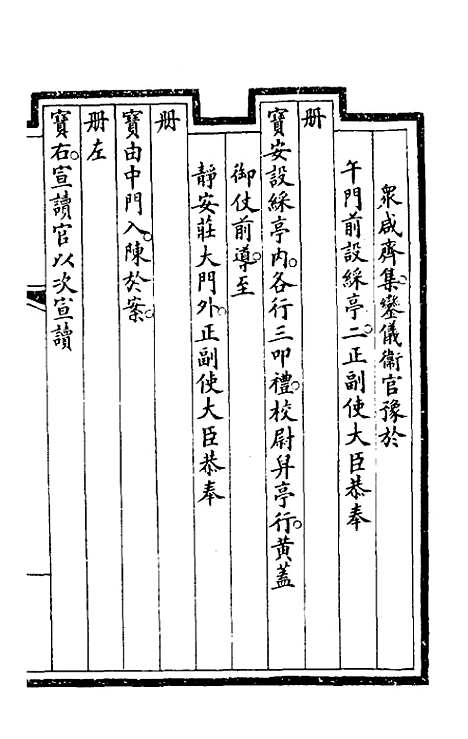 衆咸齊集。鑾儀衞官豫於
午門前設綵亭二。正副使大臣恭奉
册
寶安設綵亭内。各行三叩禮。校尉舁亭行。黃蓋
御仗前導。至
靜安莊大門外。正副使大臣恭奉
册
寶由中門入。陳於案。
册左
寶右。宣讀官以次宣讀